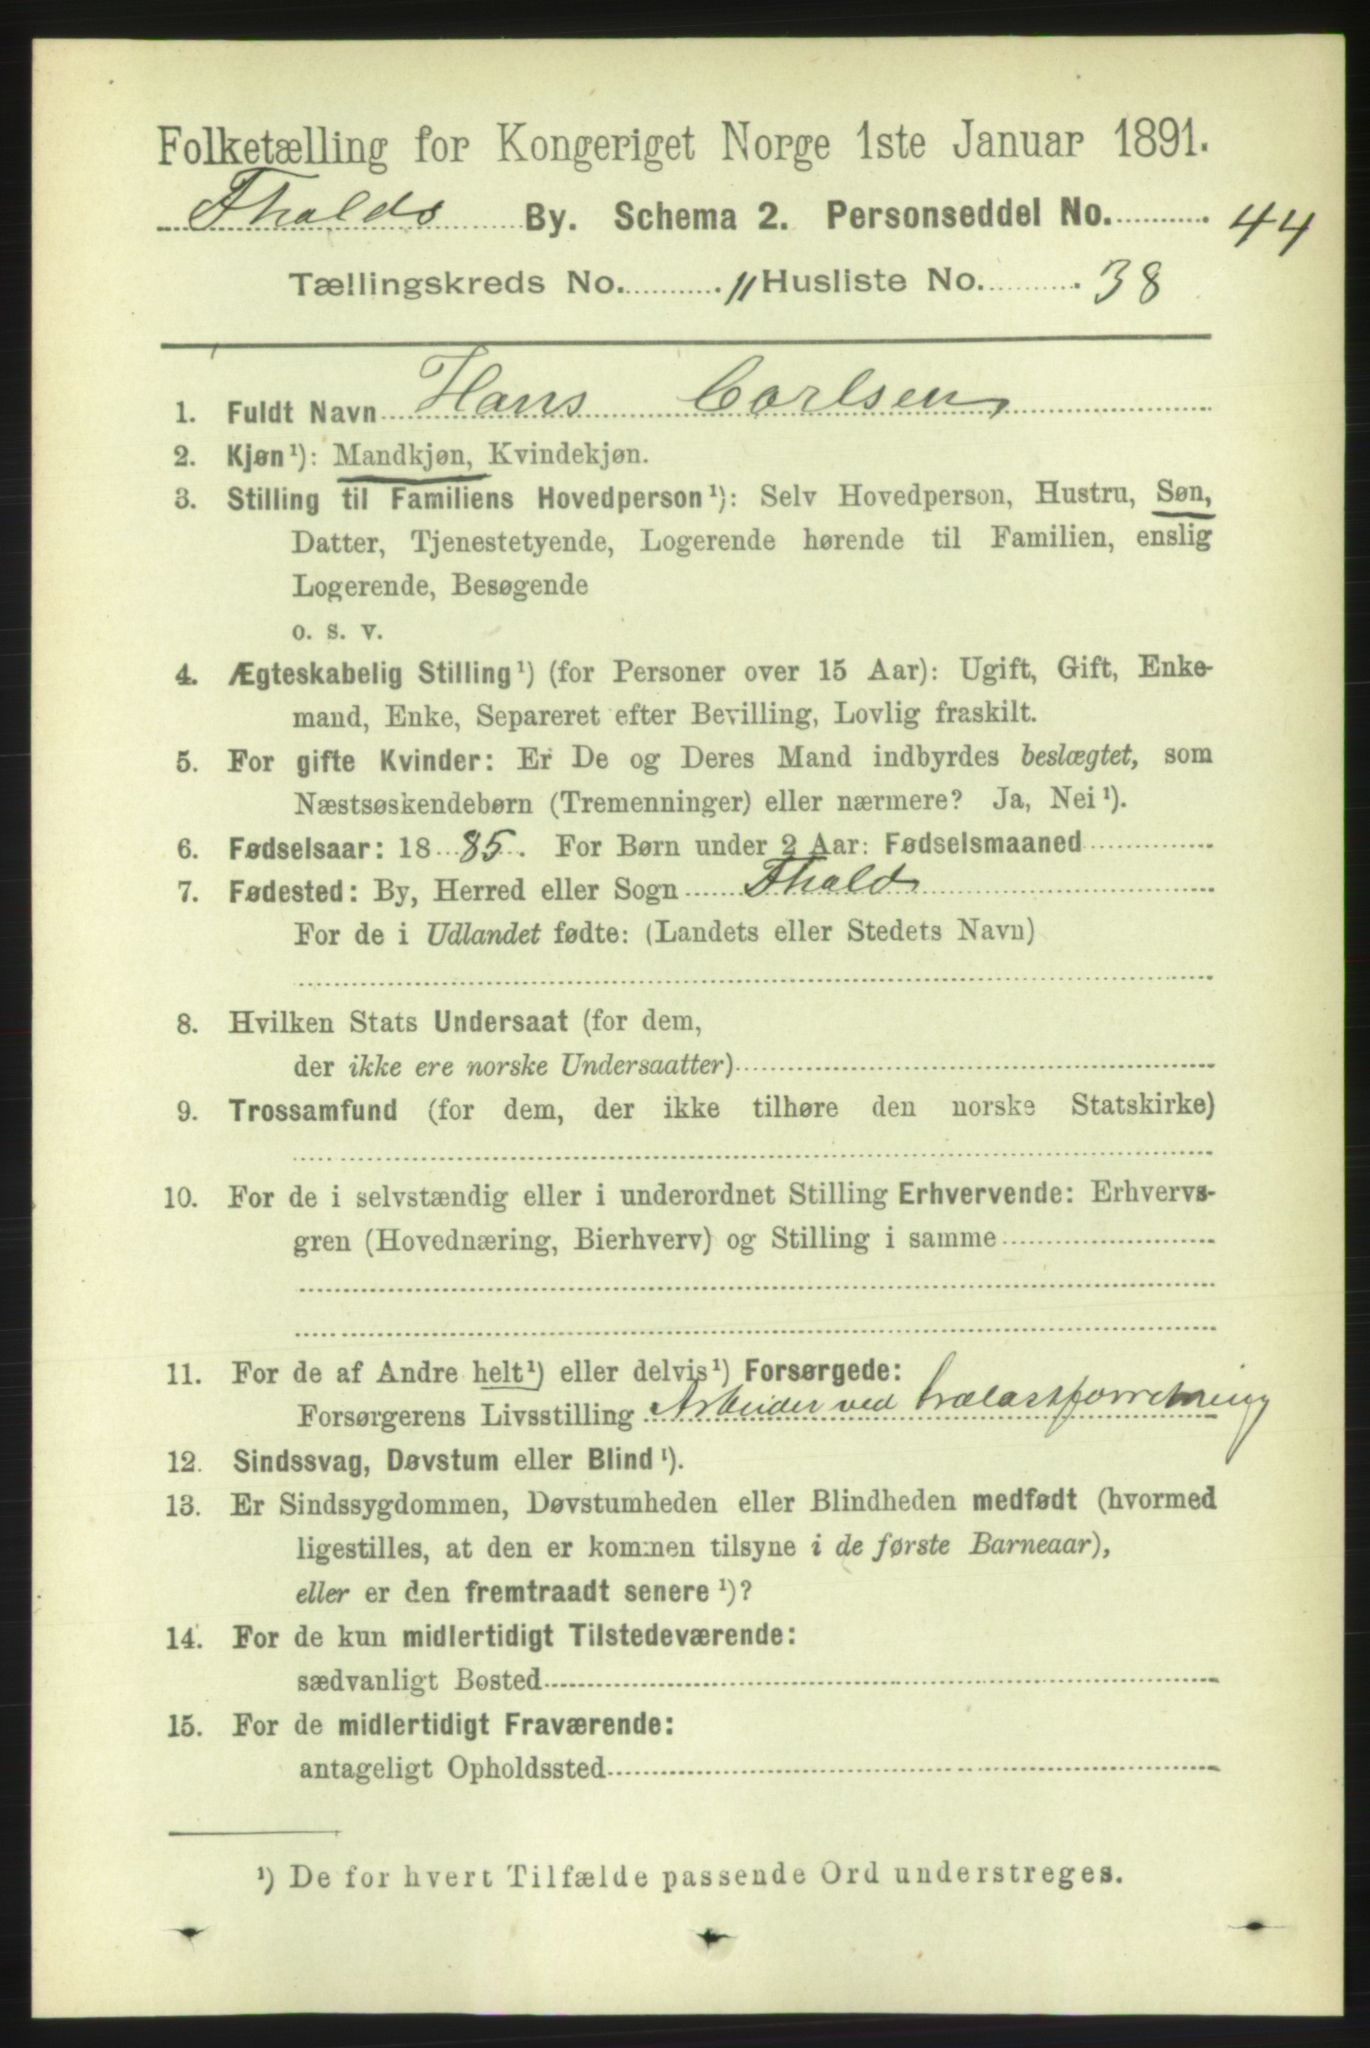 Folketælling for Kongeriget Norge 1ste Januar 1891.
Fhalds By. Schema 2. Personseddel No. 44
Tællingskreds No. 11 Husliste No. 38
1. Fuldt Navn Hans Carlsen
2. Kjøn¹): Mandkjøn, Kvindekjøn.
3. Stilling til Familiens Hovedperson¹): Selv Hovedperson, Hustru, Søn,
Datter, Tjenestetyende, Logerende hørende til Familien, enslig
Logerende, Besøgende
o. s. v.
4. Ægteskabelig Stilling¹) (for Personer over 15 Aar): Ugift, Gift, Enke-
mand, Enke, Separeret efter Bevilling, Lovlig fraskilt.
5. For gifte Kvinder: Er De og Deres Mand indbyrdes beslægtet, som
Næstsøskendebørn (Tremenninger) eller nærmere? Ja, Nei¹).
6. Fødselsaar: 1885. For Børn under 2 Aar: Fødselsmaaned
7. Fødested: By, Herred eller Sogn Fhald
For de i Udlandet fødte: (Landets eller Stedets Navn)
8. Hvilken Stats Undersaat (for dem,
der ikke ere norske Undersaatter)
9. Trossamfund (for dem, der ikke tilhøre den norske Statskirke)
10. For de i selvstændig eller i underordnet Stilling Erhvervende: Erhvervs-
gren (Hovednæring, Bierhverv) og Stilling i samme
11. For de af Andre helt¹) eller delvis¹) Forsørgede:
Forsørgerens Livsstilling Arbeider ved trælastforretning
12. Sindssvag, Døvstum eller Blind¹).
13. Er Sindssygdommen, Døvstumheden eller Blindheden medfødt (hvormed
ligestilles, at den er kommen tilsyne i de første Barneaar),
eller er den fremtraadt senere¹)?
14. For de kun midlertidigt Tilstedeværende:
sædvanligt Bosted
15. For de midlertidigt Fraværende:
antageligt Opholdssted
¹) De for hvert Tilfælde passende Ord understreges.